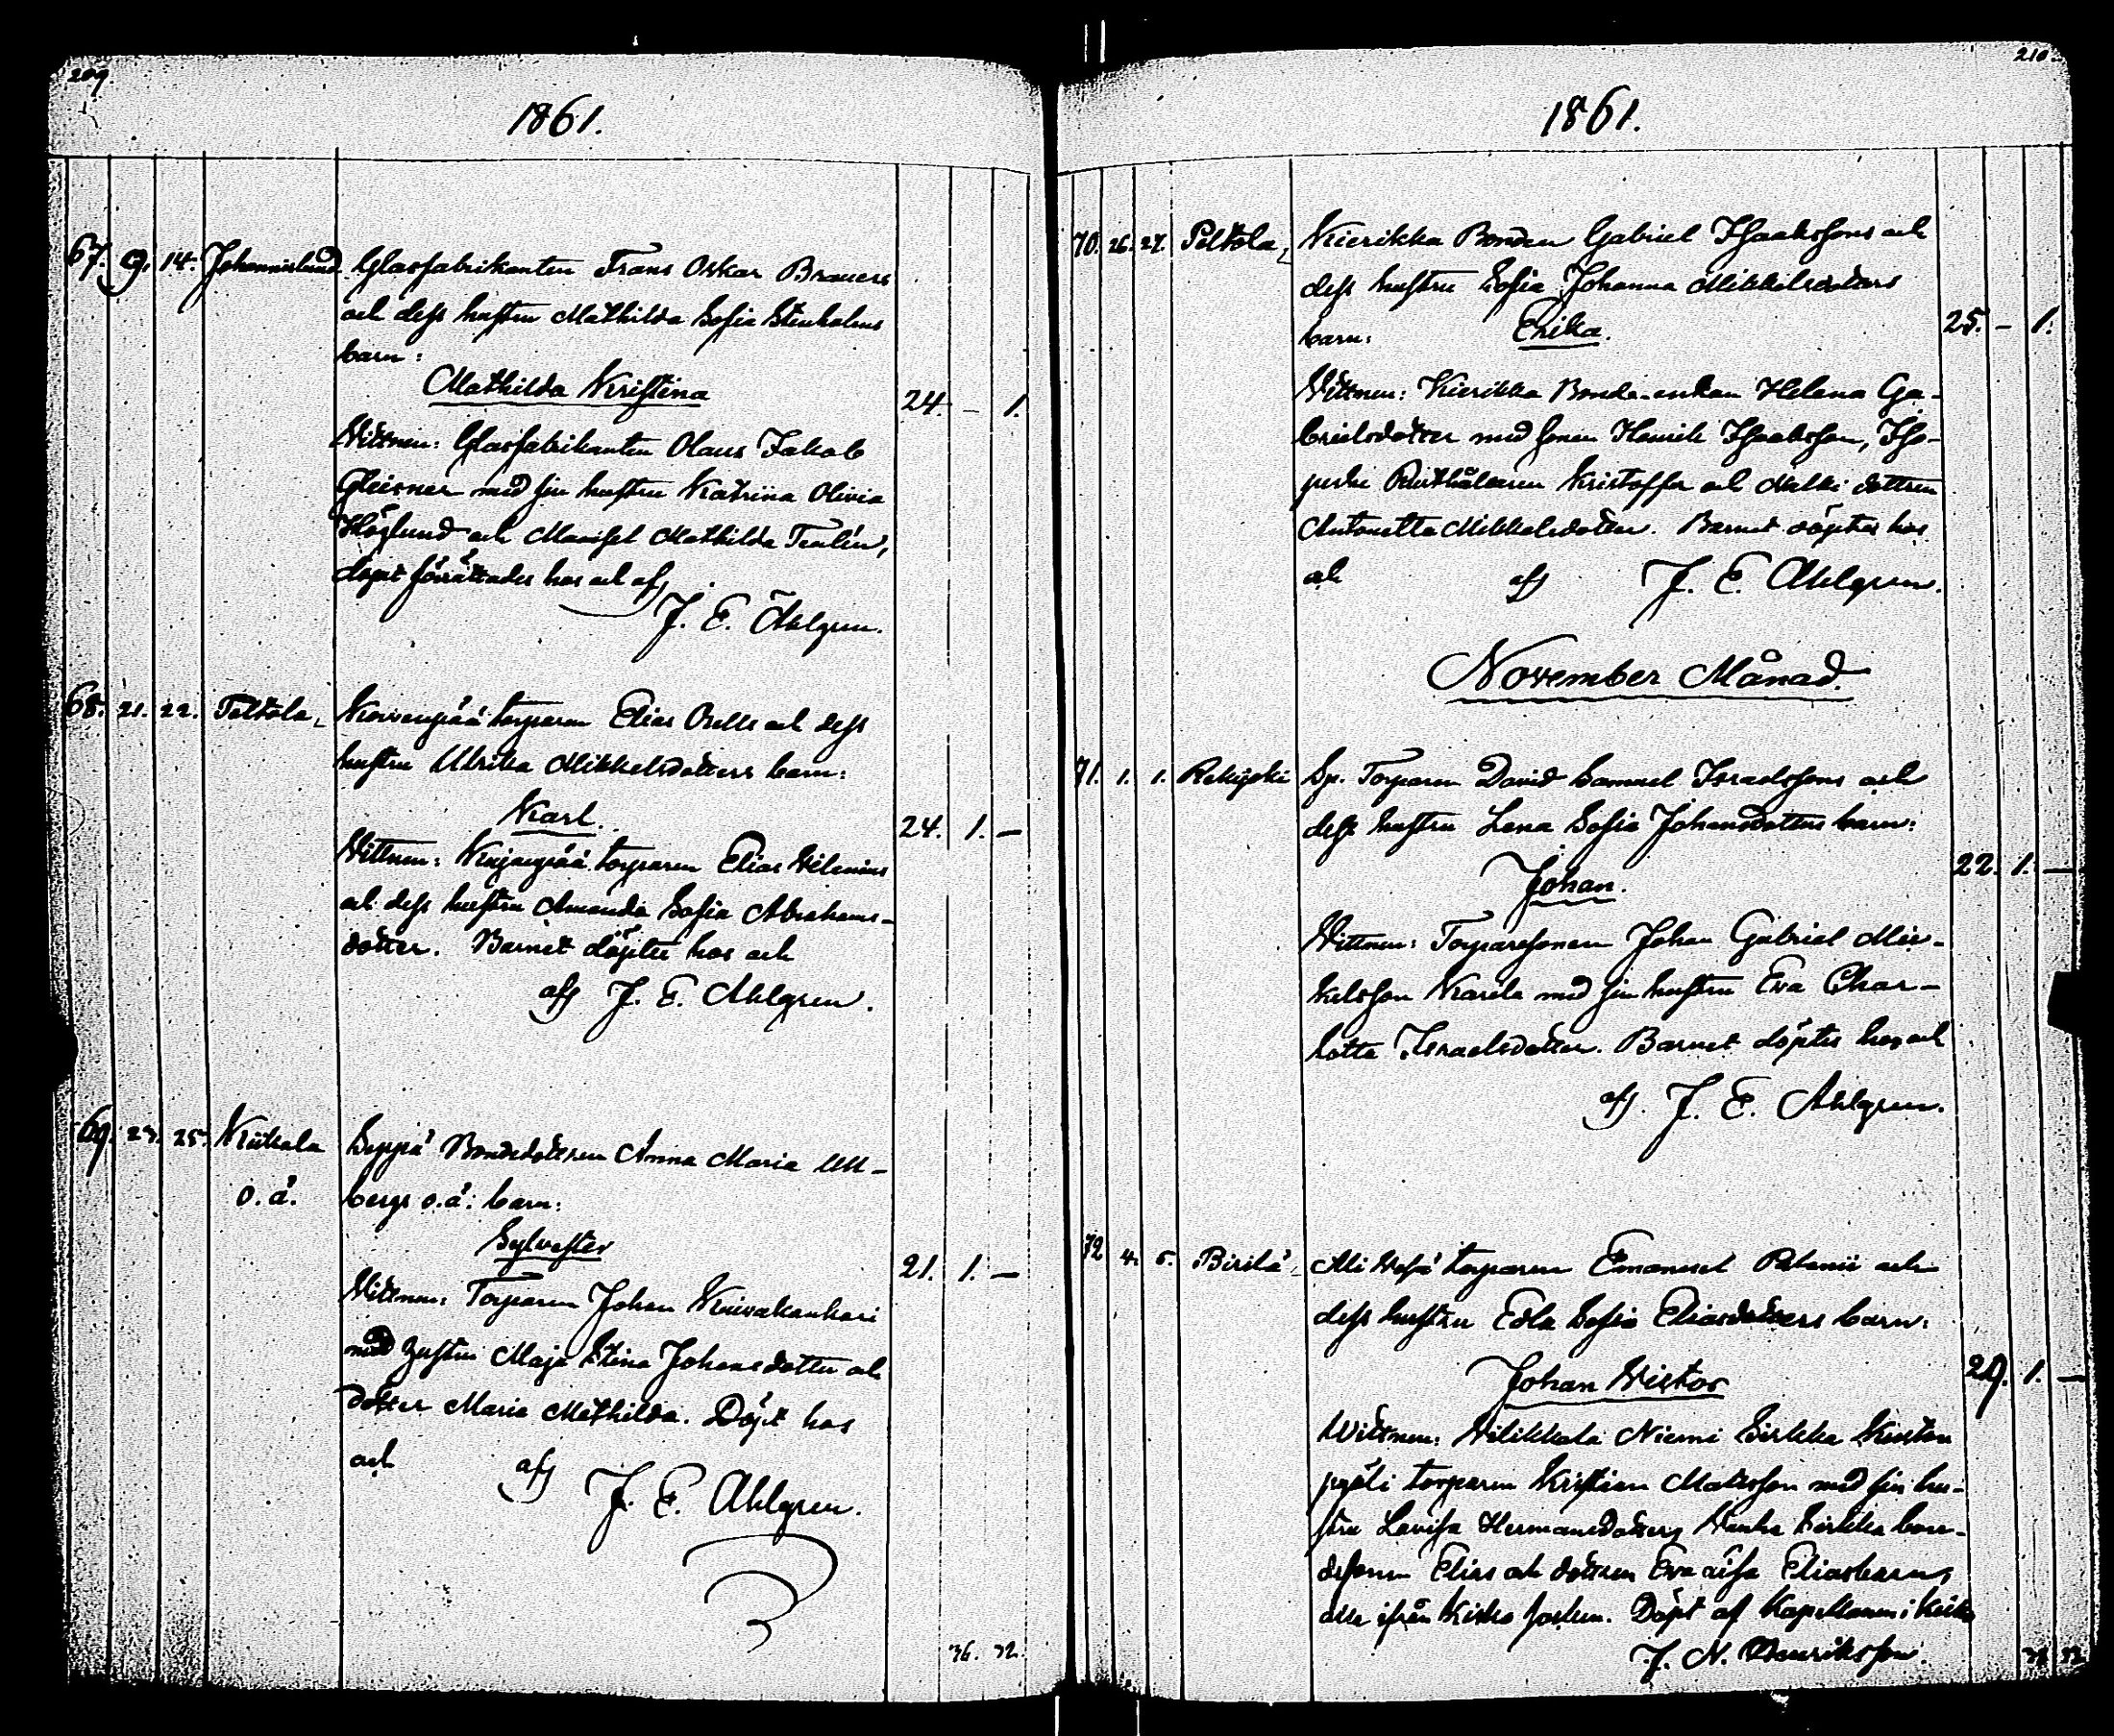 209.
1861.
67. 9. 14. Johannislund Glasfabrikanten Frans Oskar Brauers
och dess hustru Mathilda Sofia Stenholms
barn:
Mathilda Kristina
24. – 1.
Vittnen: Glasfabrikanten Olaus Jakob
Gleisner med sin hustru Katrina Olivia
Höglund och Mamsel Mathilda
dopet förrättades hos och af
J. E. Ahlgren.
68. 21. 22. Peltola, torparen Elias och dess
hustru Ulrika Mikkelsdotters barn:
Karl
24. 1. –
Vittnen: torparen Elias
och dess hustru Amanda Sofia Abrahams-
dotter. Barnet döptes hos och
af J. E. Ahlgren.
69. 25. Kiikala Seppä Bondedottren Anna Maria Ull-
o.ä. bergs o.ä. barn:
Sylvester
21. 1. –
Vittnen: Torparen Johan Kuivakankari
med hustru Maja Stina Johansdotter och
dotter Maria Mathilda. Döpt hos
och af
J. E. Ahlgren.
36. 32.
210.
1861.
70. 26. 27. Peltola, Kierikka Bonden Gabriel Isaakssons och
dess hustru Sofia Johanna Mikkelsdotters
barn: Erika.
25. – 1.
Vittnen: Kierikka Bonde-enkan Helena Ga-
brielsdotter med sonen Henrik Isaaksson, Iso-
Kristoffer och dottren
Antonetta Mikkelsdotter. Barnet döptes hos
och af J. E. Ahlgren.
November Månad.
71. 1. 1. Rekijoki Sp. Torparen David Samuel Israelssons och
dess hustru Lena Sofia Johansdotters barn:
Johan.
22. 1. –
Vittnen: Torparesonen Johan Gabriel Mik-
kelsson Karela med sin hustru Eva Char-
lotta Israelsdotter. Barnet döptes hos och
af. J. E. Ahlgren.
72 4. 5. Pirilä, torparen Emanuel och
dess hustru Edla Sofia Eliasdotters barn:
Johan Viktor
29. 1. –
Vittnen: Vilikkala Niemi Sirkka
torparen Kristian Matsson med sin hu-
stru Lovisa Hermansdotter, Sirkka bon-
desonen Elias och dottren Eva Eliasbarn,
alla ifrån Kisko socken. Döpt af Kapellanen i Kisko
J. N. Henriksson.